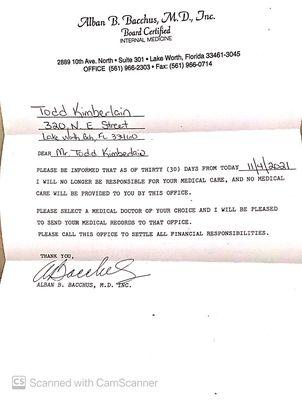 Alban B. Bacchus, M.D., Inc.
Board Certified
INTERNAL MEDICINE
2889 10th Ave. North • Suite 301 • Lake Worth, Florida 33461-3045
OFFICE (561) 966-2303 • Fax: (561) 966-0714
Todd Kimberlain
320 N. E Street
Lake Worth Bch, FL 33460
DEAR Mr. Todd Kimberlain
PLEASE BE INFORMED THAT AS OF THIRTY (30) DAYS FROM TODAY 11/4/2021
I WILL NO LONGER BE RESPONSIBLE FOR YOUR MEDICAL CARE, AND NO MEDICAL
CARE WILL BE PROVIDED TO YOU BY THIS OFFICE.
PLEASE SELECT A MEDICAL DOCTOR OF YOUR CHOICE AND I WILL BE PLEASED
TO SEND YOUR MEDICAL RECORDS TO THAT OFFICE.
PLEASE CALL THIS OFFICE TO SETTLE ALL FINANCIAL RESPONSIBILITIES.
THANK YOU,
ABacchus
ALBAN B. BACCHUS, M.D. INC.
CS Scanned with CamScanner